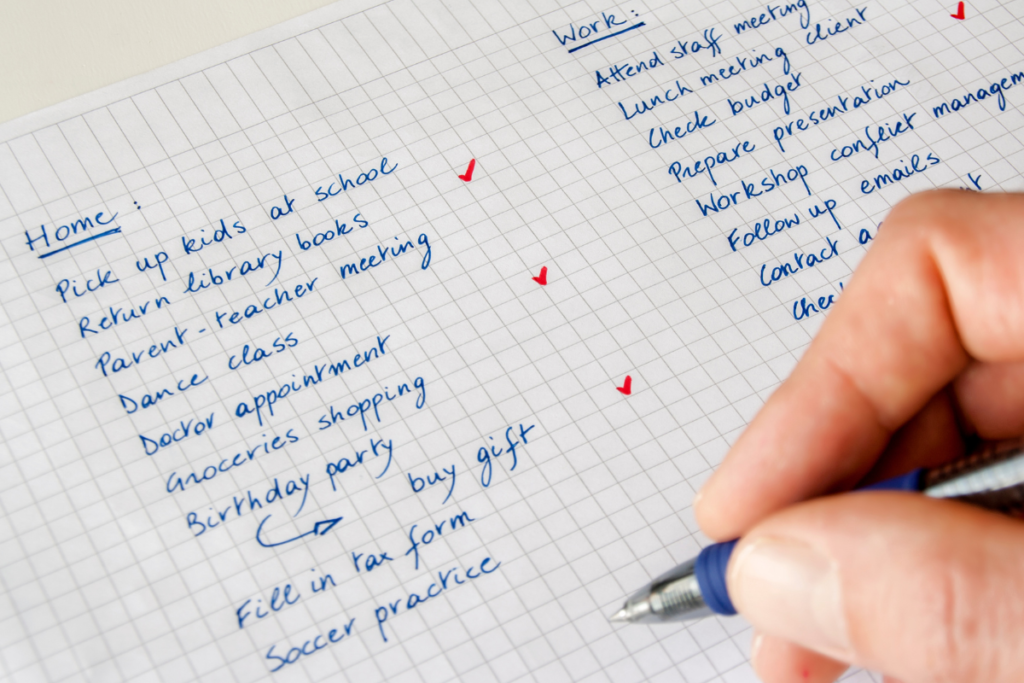 Home :
Pick up kids at school
Return library books
Parent-teacher meeting
Dance class
Doctor appointment
Groceries shopping
Birthday party
buy gift
Fill in tax form
Soccer practice
Work :
Attend staff meeting
Lunch meeting client
Check budget
Prepare presentation
Workshop conflict
Follow up emails
Contact